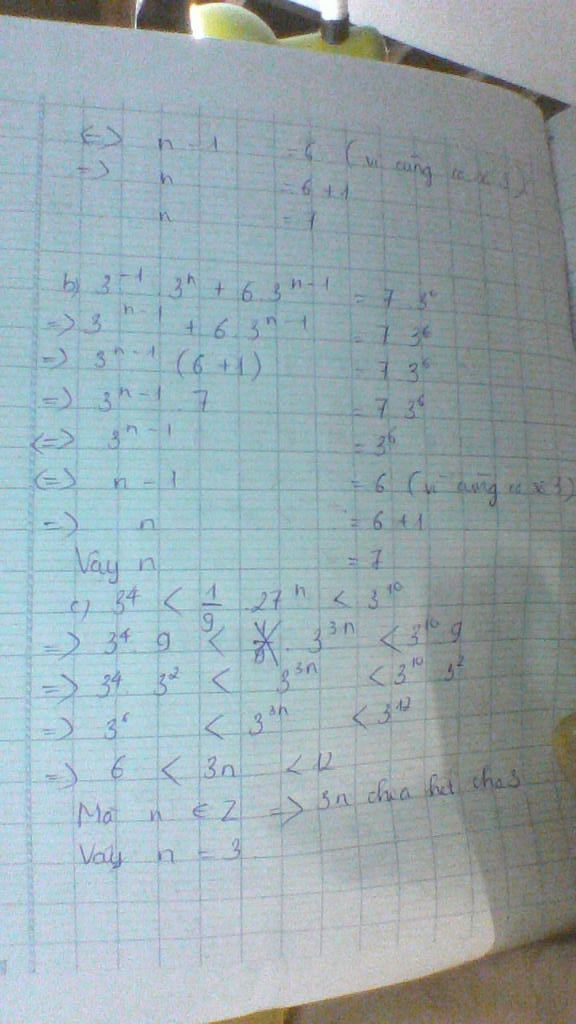 <=> n - 1 = 6 (vì cùng cs x 3)
=> n = 6 + 1
n = 7
b) 3^-1 . 3^n + 6 . 3^n-1 = 7 . 3^6
=> 3^n-1 + 6 . 3^n-1 = 7 . 3^6
=> 3^n-1 (6 + 1) = 7 . 3^6
=> 3^n-1 . 7 = 7 . 3^6
<=> 3^n-1 = 3^6
<=> n - 1 = 6 (vì cùng cs x 3)
=> n = 6 + 1
Vậy n = 7
c) 3^4 < 1/9 . 27^n < 3^10
=> 3^4 . 9 < . 3^3n < 3^10 . 9
=> 3^4 . 3^2 < 3^3n < 3^10 . 3^2
=> 3^6 < 3^3n < 3^12
=> 6 < 3n < 12
Mà n ∈ Z => 3n chia hết cho 3
Vậy n = 3